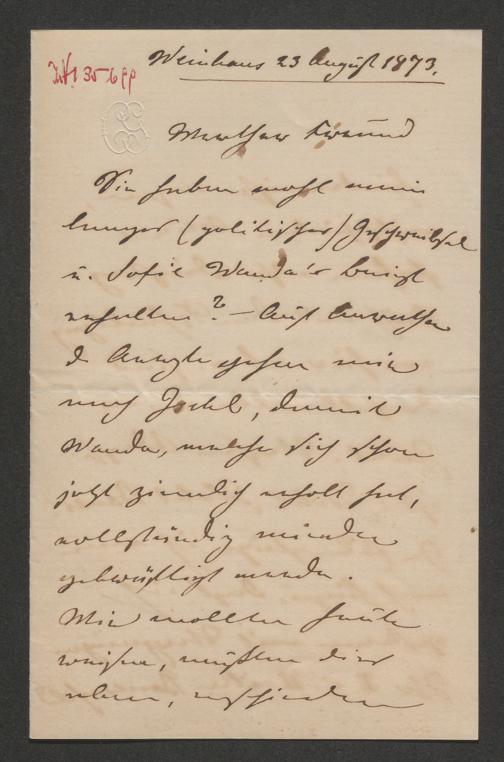 Weinhaus 23 August 1873.
Werther Freund
Sie haben wohl mein
langes (politisches) Geschreibsel
u. Sofie Wanda's Brief
erhalten? — Auf Anrathen
d. Aerzte gehen wir
nach Ischl, damit
Wanda, welche sich schon
jetzt ziemlich erholt hat,
vollständig wieder
gekräftigt werde.
Wir wollten heute
reisen, mußten dies
aber, verschieden